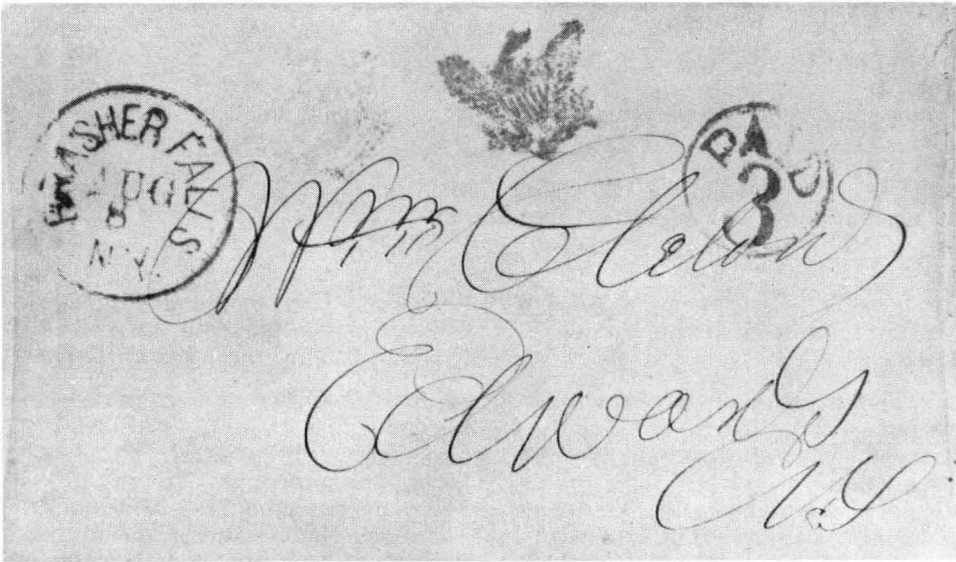 BRASHER FALLS
AUG
8
N.Y.
PAID
3
Wm Cleland
Edwards
N.Y